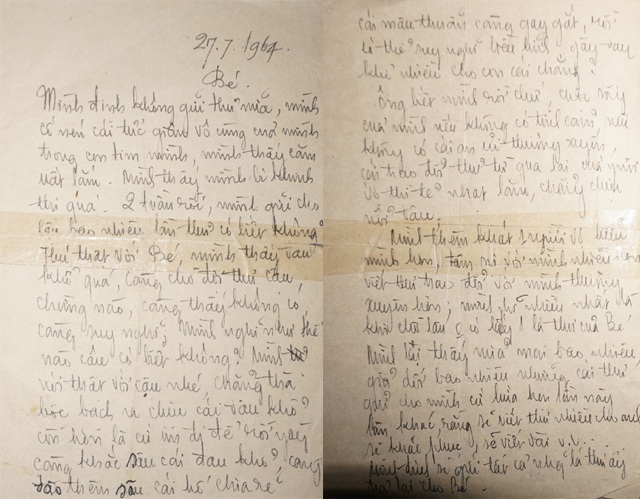 27.7.1964.
Bé.
Mình định không gửi thư nữa, mình
cố nén cái tức giận vô cùng của mình
trong con tim mình, mình thấy căm
uất lắm. Mình thấy mình bị khinh
thị quá. 2 tuần rồi, mình gửi cho
cậu bao nhiêu lần thư có biết không?
Thú thật với Bé, mình thấy đau
khổ quá, càng chờ đợi thư cậu,
chừng nào, càng thấy không có
càng suy nghĩ, mình nghĩ như thế
nào cậu có biết không? Mình
nói thật với cậu nhé, chẳng thà
bộc bạch và chịu cái đau khổ
còn hơn là cứ im đi để rồi ngày
càng khắc sâu cái đau khổ, càng
đào thêm sâu cái hố chia rẽ
cái mâu thuẫn càng gay gắt, rồi
có thể suy nghĩ gây tai
nhiều cho con cái chăng?
Ông biết mình rồi chứ, cuộc sống
của mình nếu không có tình cảm, nếu
không có cái an ủi thường xuyên,
cái trao đổi thư từ qua lại
vô thì tẻ nhạt lắm, chẳng
nổi đâu.
Mình thèm khát người vợ hiểu
mình hơn, tâm sự với mình nhiều hơn
viết thư trao đổi với mình thường
xuyên hơn, mình nhớ nhiều nhất là
khi chờ lâu có lấy 1 lá thư của Bé
Mình lại thấy mỉa mai bao nhiêu,
giả dối bao nhiêu những cái thư
gửi cho mình cứ hứa hẹn lần này
lần khác, rằng sẽ viết thư nhiều cho anh
sẽ khắc phục, sẽ viết dài v.v...
mình định sẽ gửi tất cả những lá thư ấy
lại cho Bé.